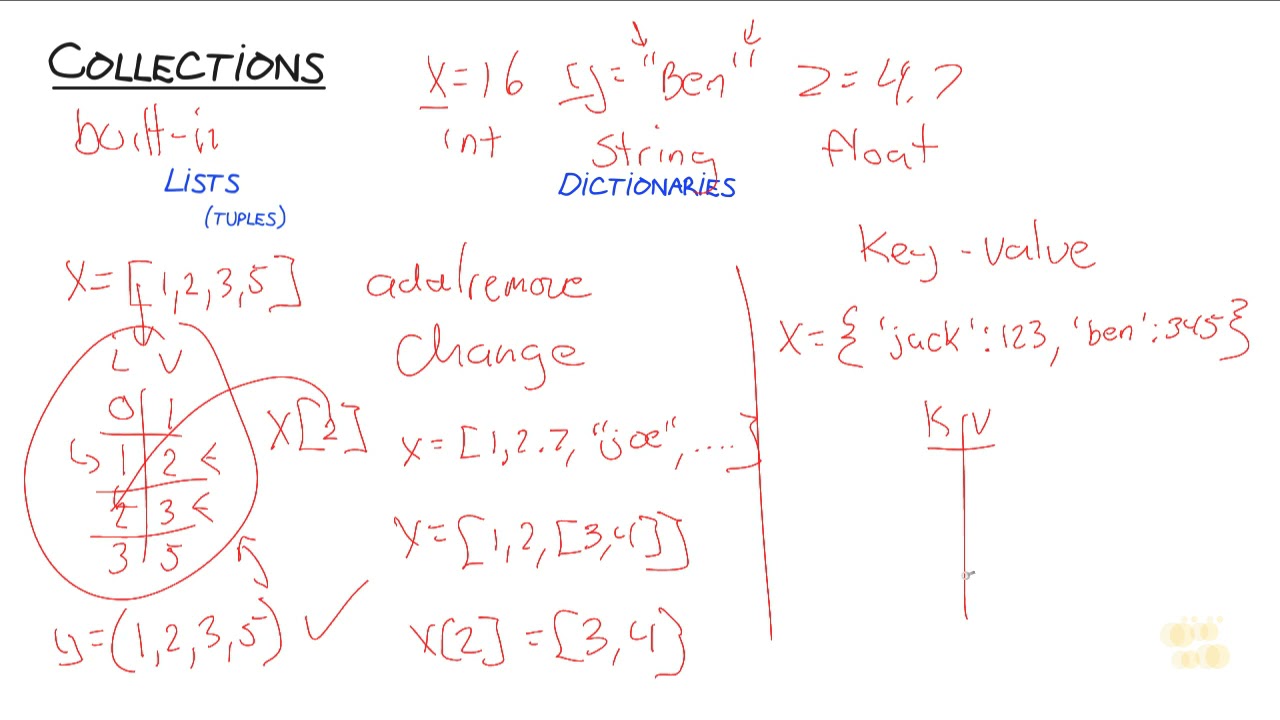 COLLECTIONS
x=16 y="Ben" z=4.7
built-in
int string float
LISTS
(TUPLES)
DICTIONARIES
x=[1,2,3,5]
L V
0 1
1 2
2 3
3 5
x[2]
y=(1,2,3,5)
add/remove
change
x=[1,2.7,"joe",....]
x=[1,2,[3,4]]
x[2]=[3,4]
Key-value
x={'jack':123,'ben':345}
K V